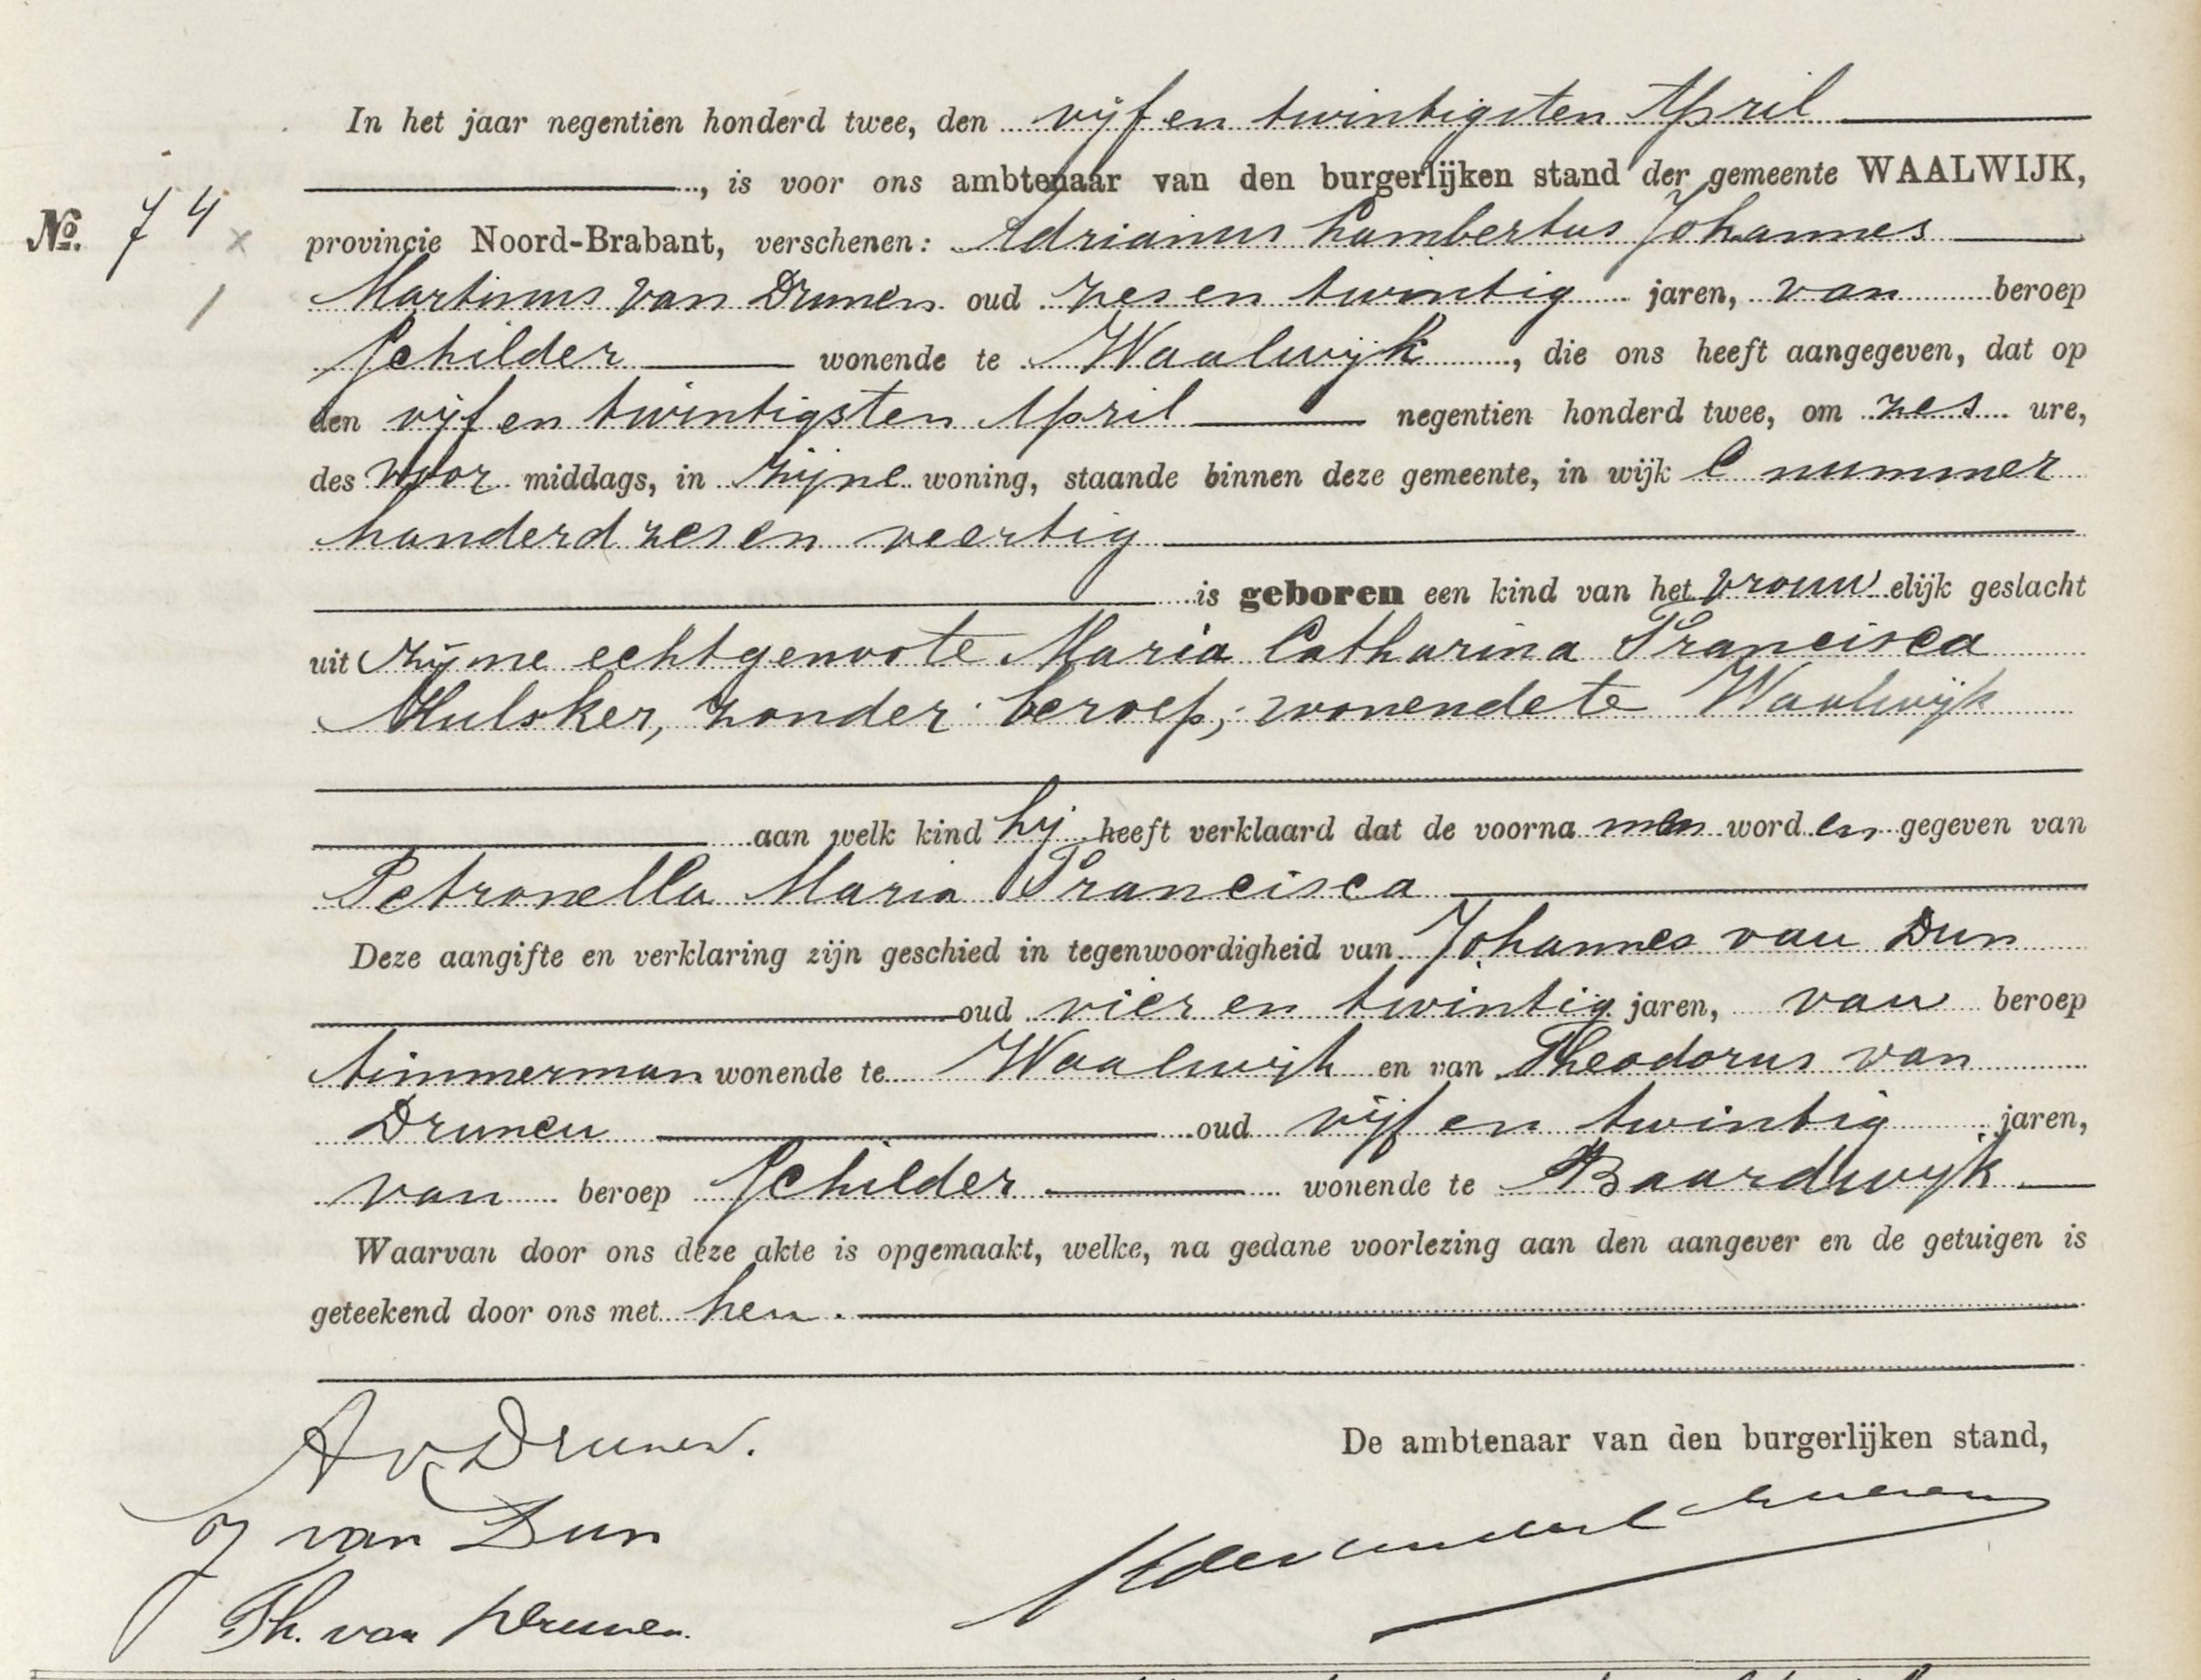 In het jaar negentien honderd twee, den vijf en twintigsten April
, is voor ons ambtenaar van den burgerlijken stand der gemeente WAALWIJK,
No. 74 x provincie Noord-Brabant, verschenen: Adrianus Lambertus Johannes
Martinus van Drunen oud zes en twintig jaren, van beroep
Schilder wonende te Waalwijk, die ons heeft aangegeven, dat op
den vijf en twintigsten April negentien honderd twee, om zes ure,
des voor middags, in zijne woning, staande binnen deze gemeente, in wijk C nummer
honderd zes en veertig
is geboren een kind van het vrouwelijk geslacht
uit zijne echtgenoote Maria Catharina Francisca
Hulsker, zonder beroep, wonende te Waalwijk
aan welk kind hij heeft verklaard dat de voornamen worden gegeven van
Petronella Maria Francisca
Deze aangifte en verklaring zijn geschied in tegenwoordigheid van Johannes van Dun
oud vier en twintig jaren, van beroep
timmerman wonende te Waalwijk en van Theodorus van
Drunen oud vijf en twintig jaren,
van beroep Schilder wonende te Baardwijk
Waarvan door ons deze akte is opgemaakt, welke, na gedane voorlezing aan den aangever en de getuigen is
geteekend door ons met hen.
A v Drunen.
De ambtenaar van den burgerlijken stand,
J van Dun
Th. van Drunen.